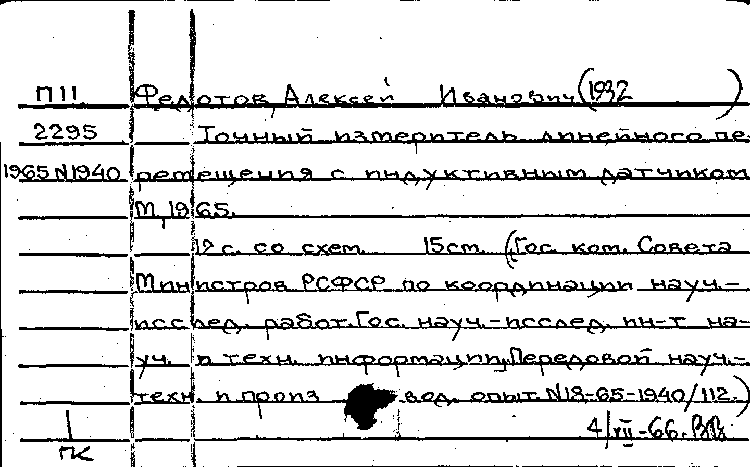 П11 Федотов, Алексей Иванович (1932 )
2295 Точный измеритель линейного пе
1965 N1940 ремещения с индуктивным датчиком
М, 1965.
12 с. со схем. 15 см. (Гос. ком. Совета
Министров РСФСР по координации науч.-
исслед. работ. Гос. науч.-исслед. ин-т на-
уч. и техн. информации. Передовой науч.-
техн. и произ вод. опыт. N18-65-1940/112.)
4/VII-66.
ПК